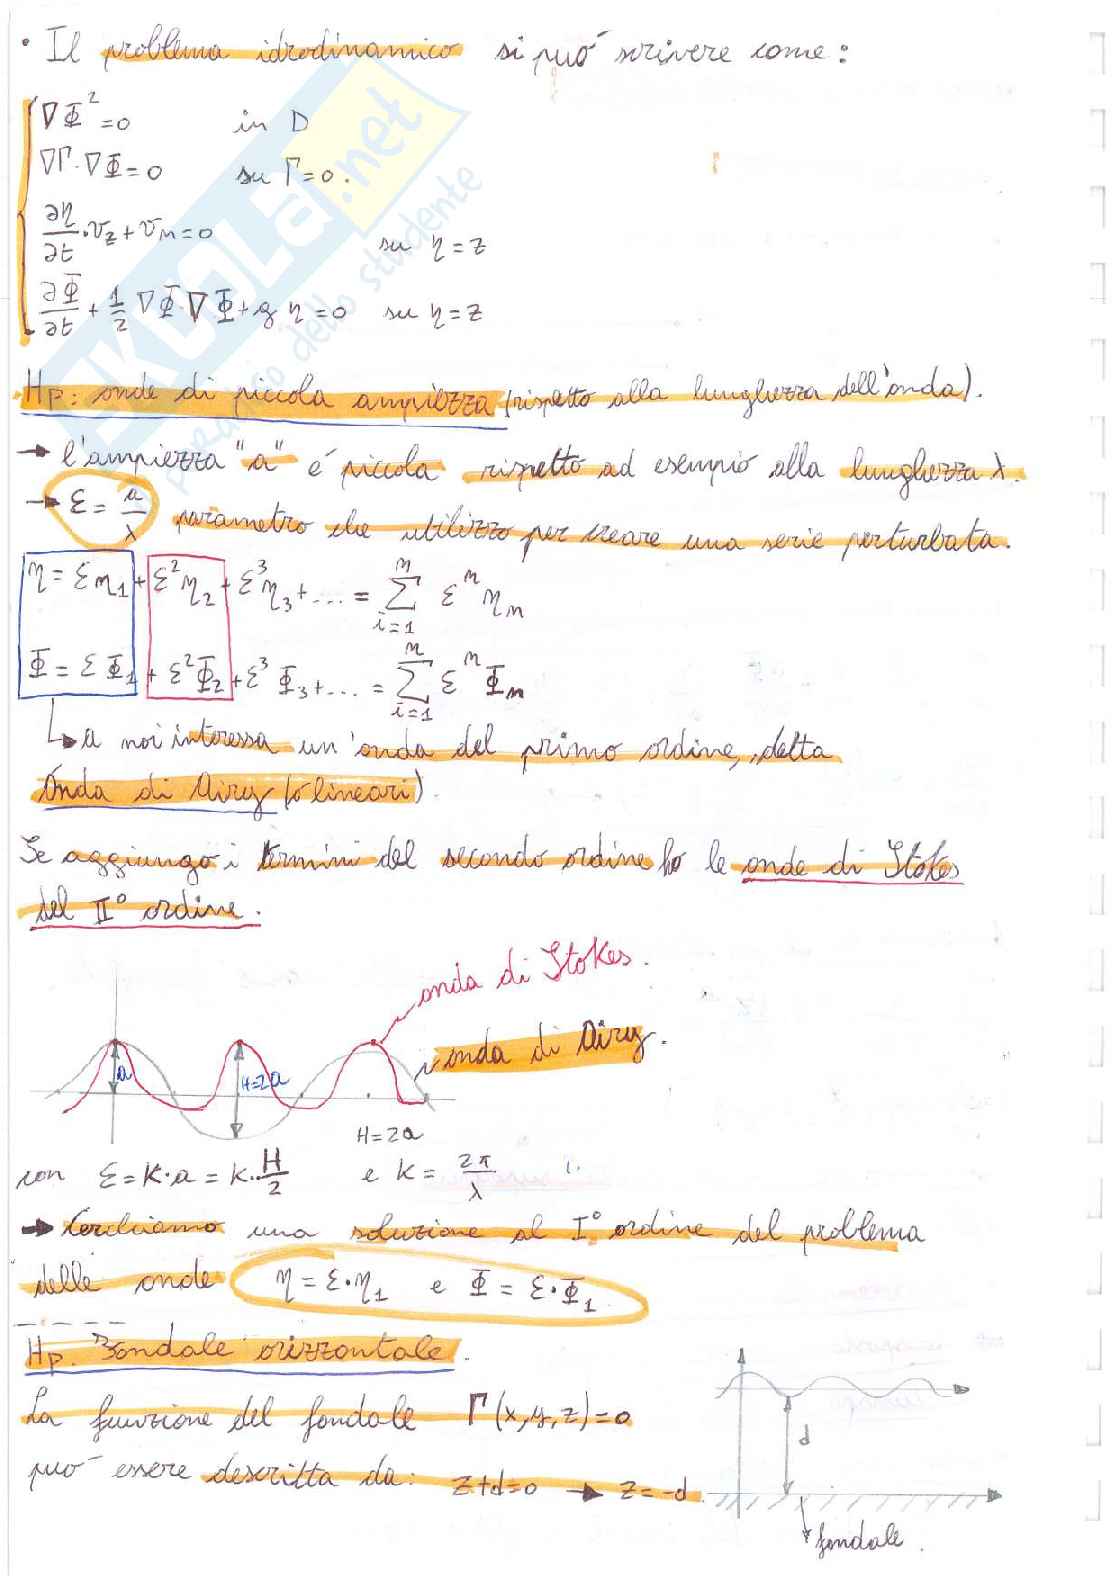 • Il problema idrodinamico si può scrivere come:
∇Φ² = 0 in D
∇Γ·∇Φ = 0 su Γ=0.
∂η/∂t · v_z + v_n = 0 su η = z
∂Φ/∂t + 1/2 ∇Φ·∇Φ + g η = 0 su η = z
Hp: onde di piccola ampiezza (rispetto alla lunghezza dell'onda).
→ l'ampiezza "a" é piccola rispetto ad esempio alla lunghezza λ.
→ ε = a/λ parametro che utilizzo per creare una serie perturbata.
η = εη₁ + ε²η₂ + ε³η₃ + ... = Σ_{i=1}^{n} εⁿ η_n
Φ = εΦ₁ + ε²Φ₂ + ε³Φ₃ + ... = Σ_{i=1}^{n} εⁿ Φ_n
↳ a noi interessa un'onda del primo ordine, detta
Onda di Airy (o lineari).
Se aggiungo i termini del secondo ordine ho le onde di Stokes
del II° ordine.
onda di Stokes.
onda di Airy.
a
H=2a
H=2a
con ε = k·a = k·H/2 e k = 2π/λ
→ Cerchiamo una soluzione al I° ordine del problema
delle onde η = ε·η₁ e Φ = ε·Φ₁
Hp. Fondale orizzontale.
La funzione del fondale Γ(x,y,z)=0
può essere descritta da: z+d=0 → z=-d
d
fondale.
SKUOLA.net
paradiso dello studente